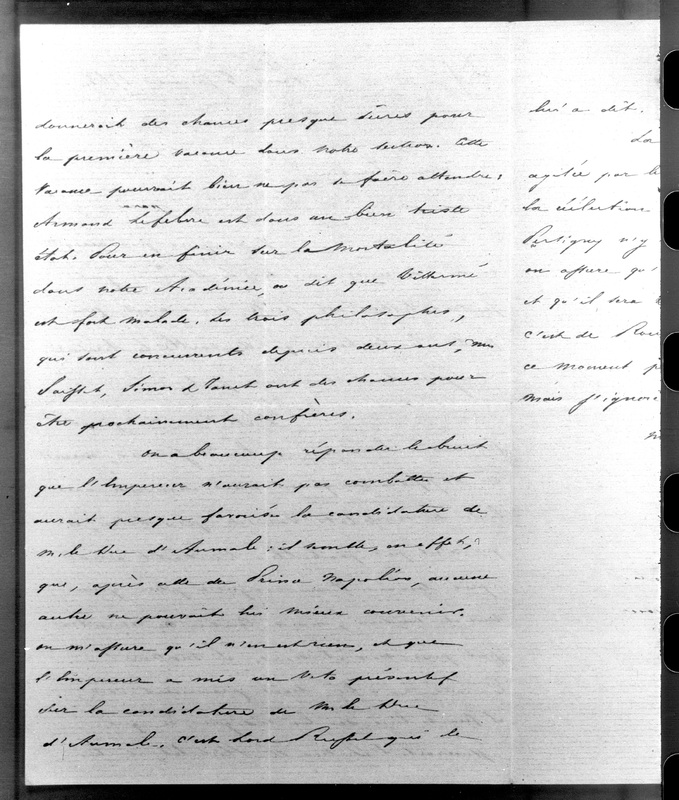 donnerait des chances presque sûres pour
la première vacance dans notre section. Cette
vacance pourrait bien ne pas se faire attendre;
Armand Lefebvre est dans un bien triste
état. Pour en finir sur la mortalité
dans notre Académie, on dit que Villermé
est fort malade. Les trois philosophes,
qui sont concurrents depuis deux ans, MM
Saisset, Simon et Janet ont des chances pour
être prochainement confrères.
On a beaucoup répandu le bruit
que l'Empereur n'aurait pas combattu et
aurait presque favorisé la candidature de
M. le Duc d'Aumale; il semble, en effet,
que, après celle du Prince Napoléon, aucune
autre ne pouvait lui mieux convenir.
On m'assure qu'il n'en est rien, et que
l'Empereur a mis un veto présentif
sur la candidature de M. le Duc
d'Aumale. C'est Lord Russel qui le
lui a dit.
La
agitée par le
la réélection
Persigny n'y
on assure qu'
et qu'il sera
c'est de Rou
ce moment p
mais j'ignore